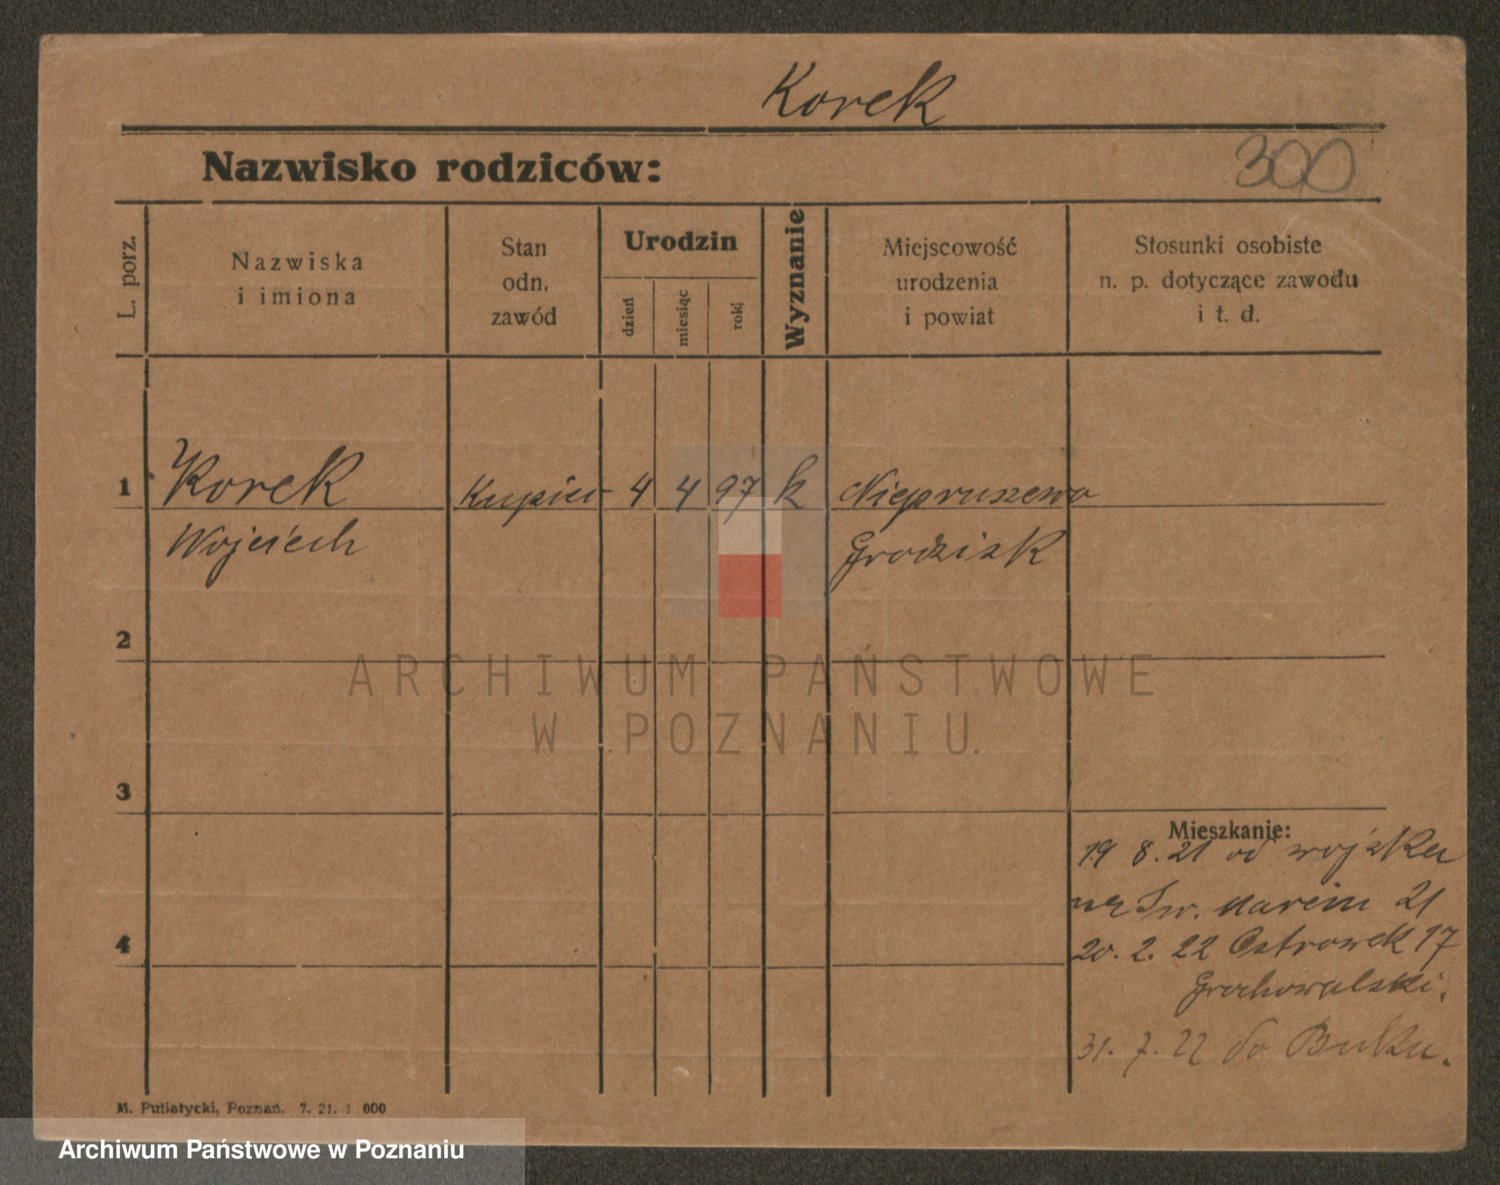 Korek
Nazwisko rodziców:
300
L. porz.
Nazwiska
i imiona
Stan
odn.
zawód
Urodzin
dzień
miesiąc
rok
Wyznanie
Miejscowość
urodzenia
i powiat
Stosunki osobiste
n. p. dotyczące zawodu
i t. d.
1
Korek
Wojciech
Kupiec
4
4
97
k
Niepruszewo
Grodzisk
2
3
4
Mieszkanie:
19 8. 21 od wojska
Św. Marcin 21
20. 2. 22 Ostrowek 17
Grochowalski.
31. 7. 22 do Buku.
M. Putiatycki, Poznań. 7. 21. 1 000
ARCHIWUM PAŃSTWOWE
W POZNANIU
Archiwum Państwowe w Poznaniu